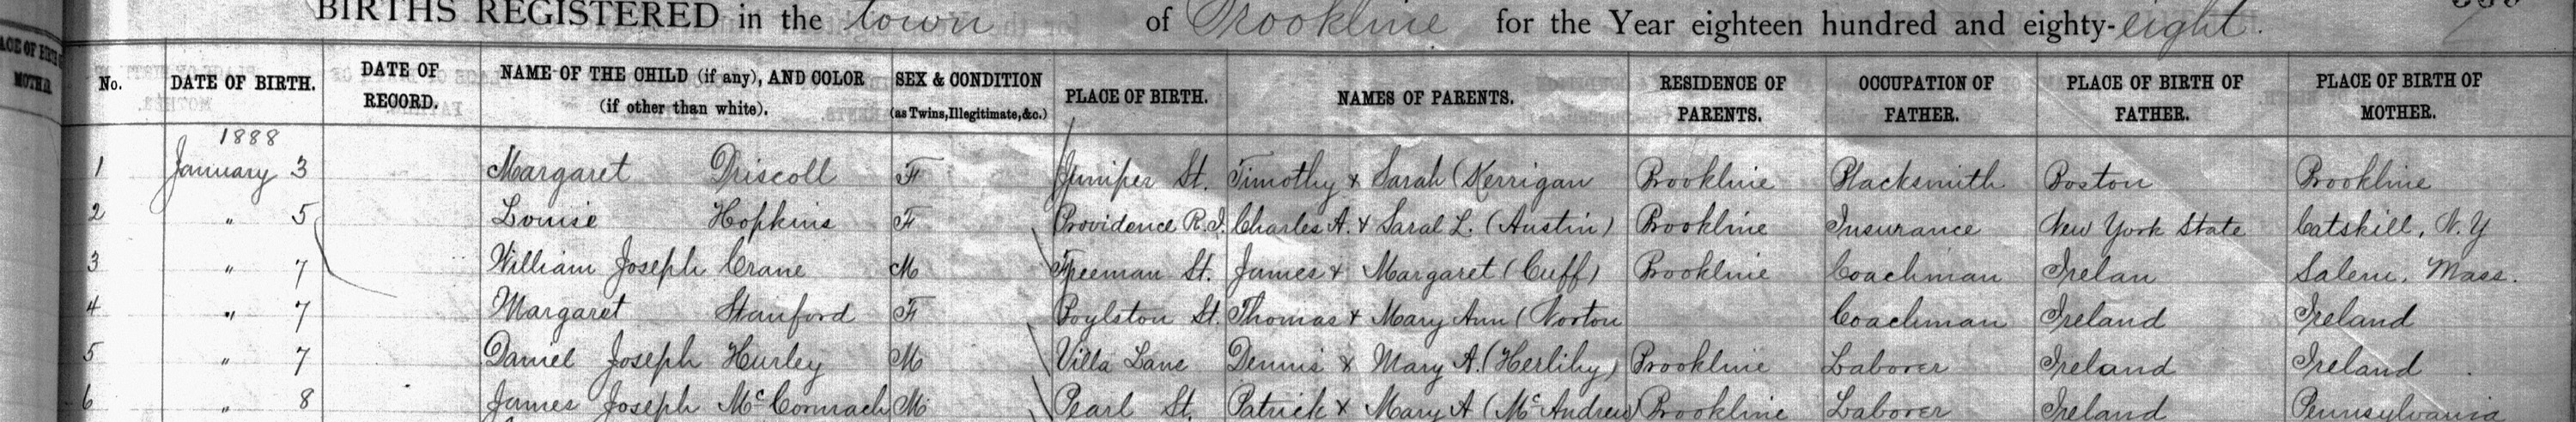 BIRTHS REGISTERED in the town of Brookline for the Year eighteen hundred and eighty-eight.
PLACE OF BIRTH MOTHER.
No. DATE OF BIRTH. DATE OF RECORD. NAME OF THE CHILD (if any), AND COLOR (if other than white). SEX & CONDITION (as Twins, Illegitimate, &c.) PLACE OF BIRTH. NAMES OF PARENTS. RESIDENCE OF PARENTS. OCCUPATION OF FATHER. PLACE OF BIRTH OF FATHER. PLACE OF BIRTH OF MOTHER.
1888
1 January 3 Margaret Driscoll F Juniper St. Timothy & Sarah (Kerrigan Brookline Blacksmith Boston Brookline
2 " 5 Louise Hopkins F Providence R.I. Charles A. & Saral L. (Austin) Brookline Insurance New York State Catskill, N.Y
3 " 7 William Joseph Crane M Freeman St. James & Margaret (Cuff) Brookline Coachman Irelan Salem, Mass.
4 " 7 Margaret Stanford F Boylston St. Thomas & Mary Ann (Norton Coachman Ireland Ireland
5 " 7 Daniel Joseph Hurley M Villa Lane Dennis & Mary A. (Herlihy) Brookline Laborer Ireland Ireland
6 " 8 James Joseph McCormack M Pearl St. Patrick & Mary A (McAndrew) Brookline Laborer Ireland Pennsylvania